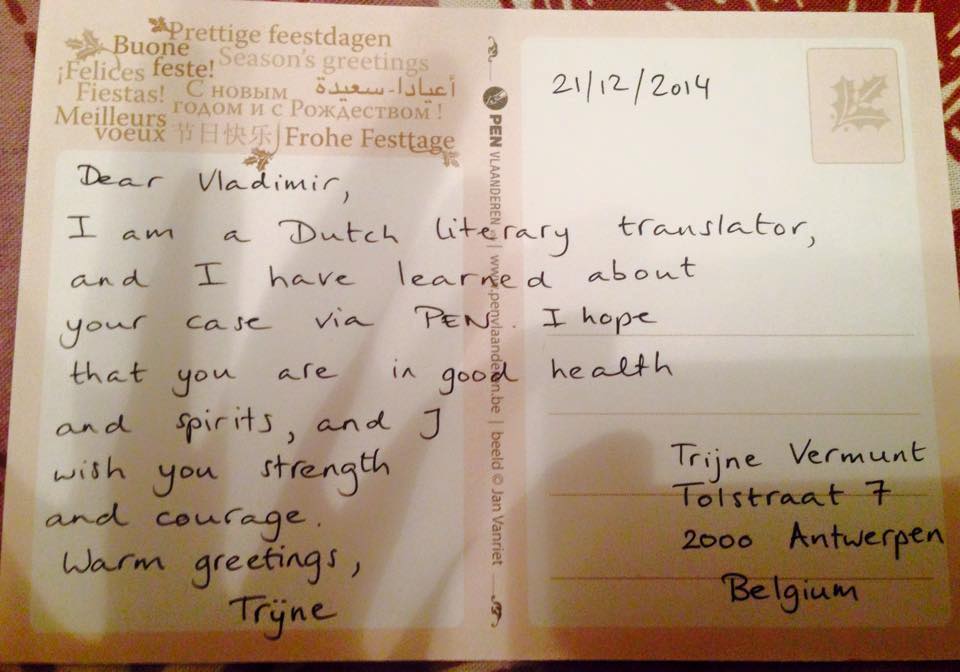 Prettige feestdagen
Buone feste!
Season's greetings
¡Felices Fiestas!
أعيادا-سعيدة
С новым годом и с Рождеством !
Meilleurs voeux
节日快乐
Frohe Festtage
Dear Vladimir,
I am a Dutch literary translator,
and I have learned about
your case via PEN. I hope
that you are in good health
and spirits, and I
wish you strength
and courage.
Warm greetings,
Trijne
PEN VLAANDEREN | www.penvlaanderen.be | beeld © Jan Vanriet
21/12/2014
Trijne Vermunt
Tolstraat 7
2000 Antwerpen
Belgium